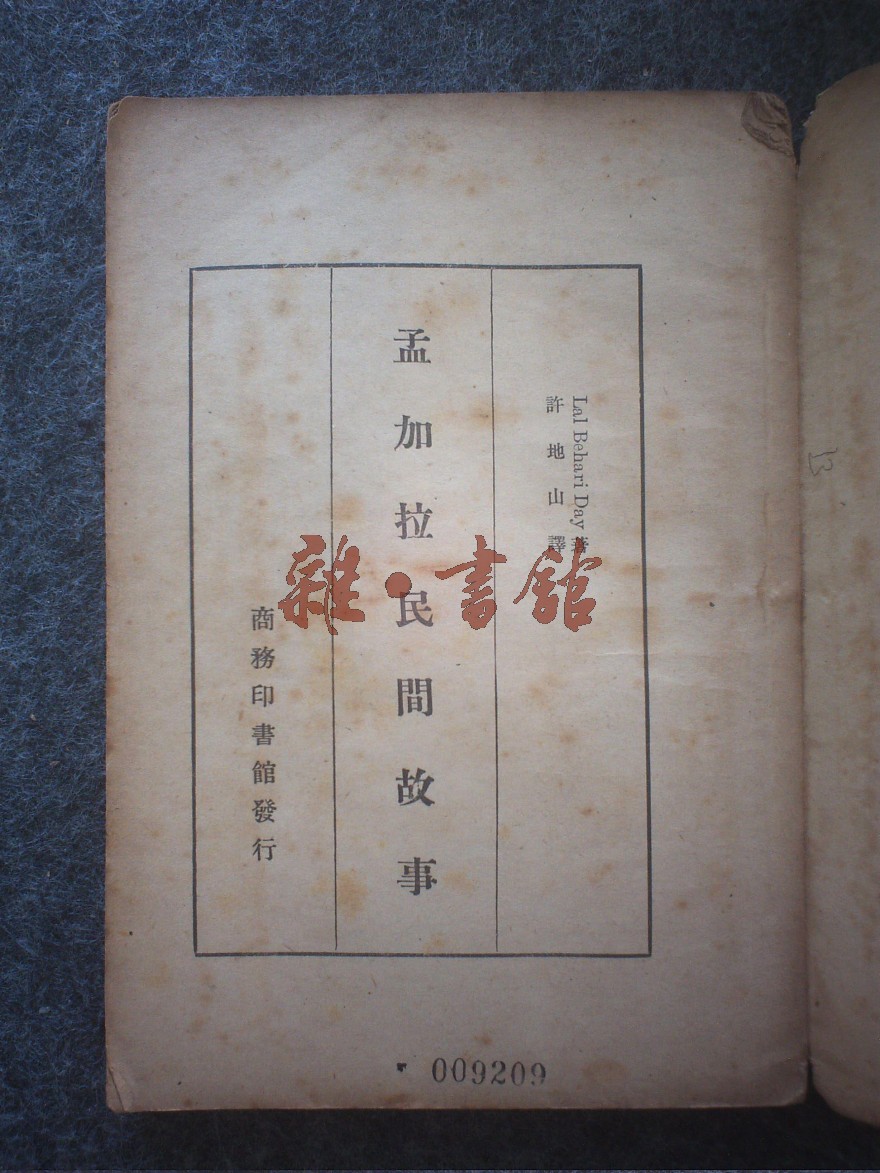 Lal Behari Day 著
許地山譯
孟加拉民間故事
商務印書館發行
雜·書館
009209